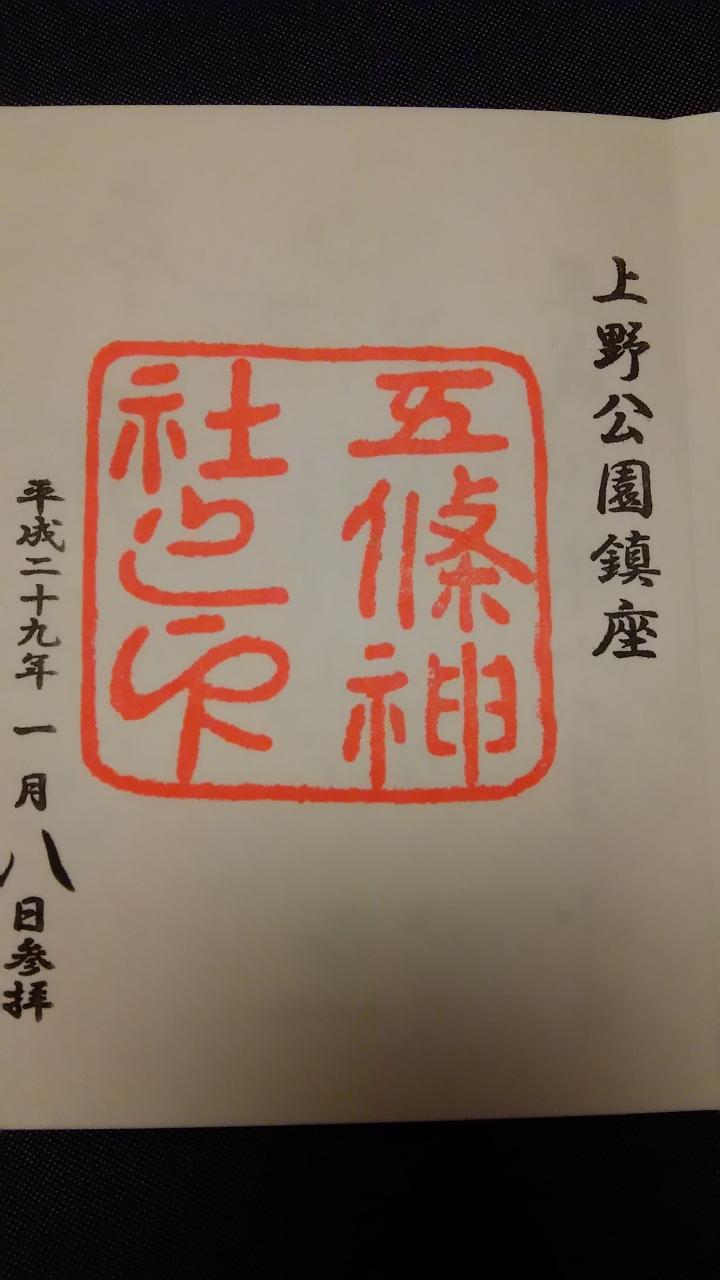 上野公園鎮座
五條神
社之印
平成二十九年一月八日参拝